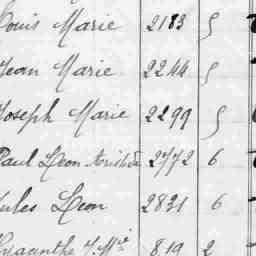 Louis Marie 2113 5
Jean Marie 2244 5
Joseph Marie 2299 5
Paul Léon Aristide 2772 6
Jules Léon 2831 6
Hyacinthe J. Mie 819 2